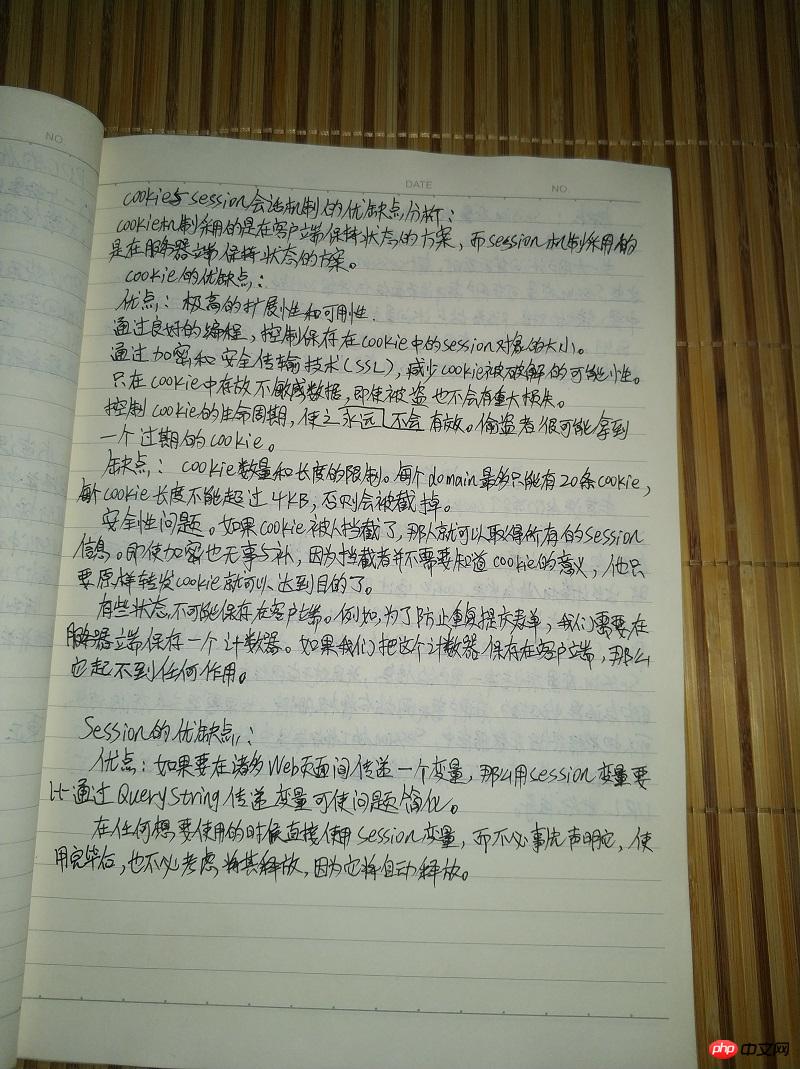 NO.
DATE
NO.
cookie与session会话机制的优缺点分析:
cookie机制采用的是在客户端保持状态的方案,而session机制采用的
是在服务器端保持状态的方案。
cookie的优缺点:
优点:极高的扩展性和可用性.
通过良好的编程,控制保存在cookie中的session对象的大小。
通过加密和安全传输技术(SSL),减少cookie被破解的可能性。
只在cookie中存放不敏感数据,即使被盗也不会有重大损失。
控制cookie的生命周期,使之永远不会有效。偷盗者很可能拿到
一个过期的cookie。
缺点:cookie数量和长度的限制。每个domain最多只能有20条cookie,
每个cookie长度不能超过4KB,否则会被截掉。
安全性问题。如果cookie被人拦截了,那人就可以取得所有的session
信息。即使加密也无事与补,因为拦截者并不需要知道cookie的意义,他只
要原样转发cookie就可以达到目的了。
有些状态不可能保存在客户端。例如,为了防止重复提交表单,我们需要在
服务器端保存一个计数器。如果我们把这个计数器保存在客户端,那么
它起不到任何作用。
Session的优缺点:
优点:如果要在诸多Web页面间传递一个变量,那么用session变量要
比通过QueryString传递变量可使问题简化。
在任何想要使用的时候直接使用session变量,而不必事先声明它,使
用完毕后,也不必考虑将其释放,因为它将自动释放。
php 中文网